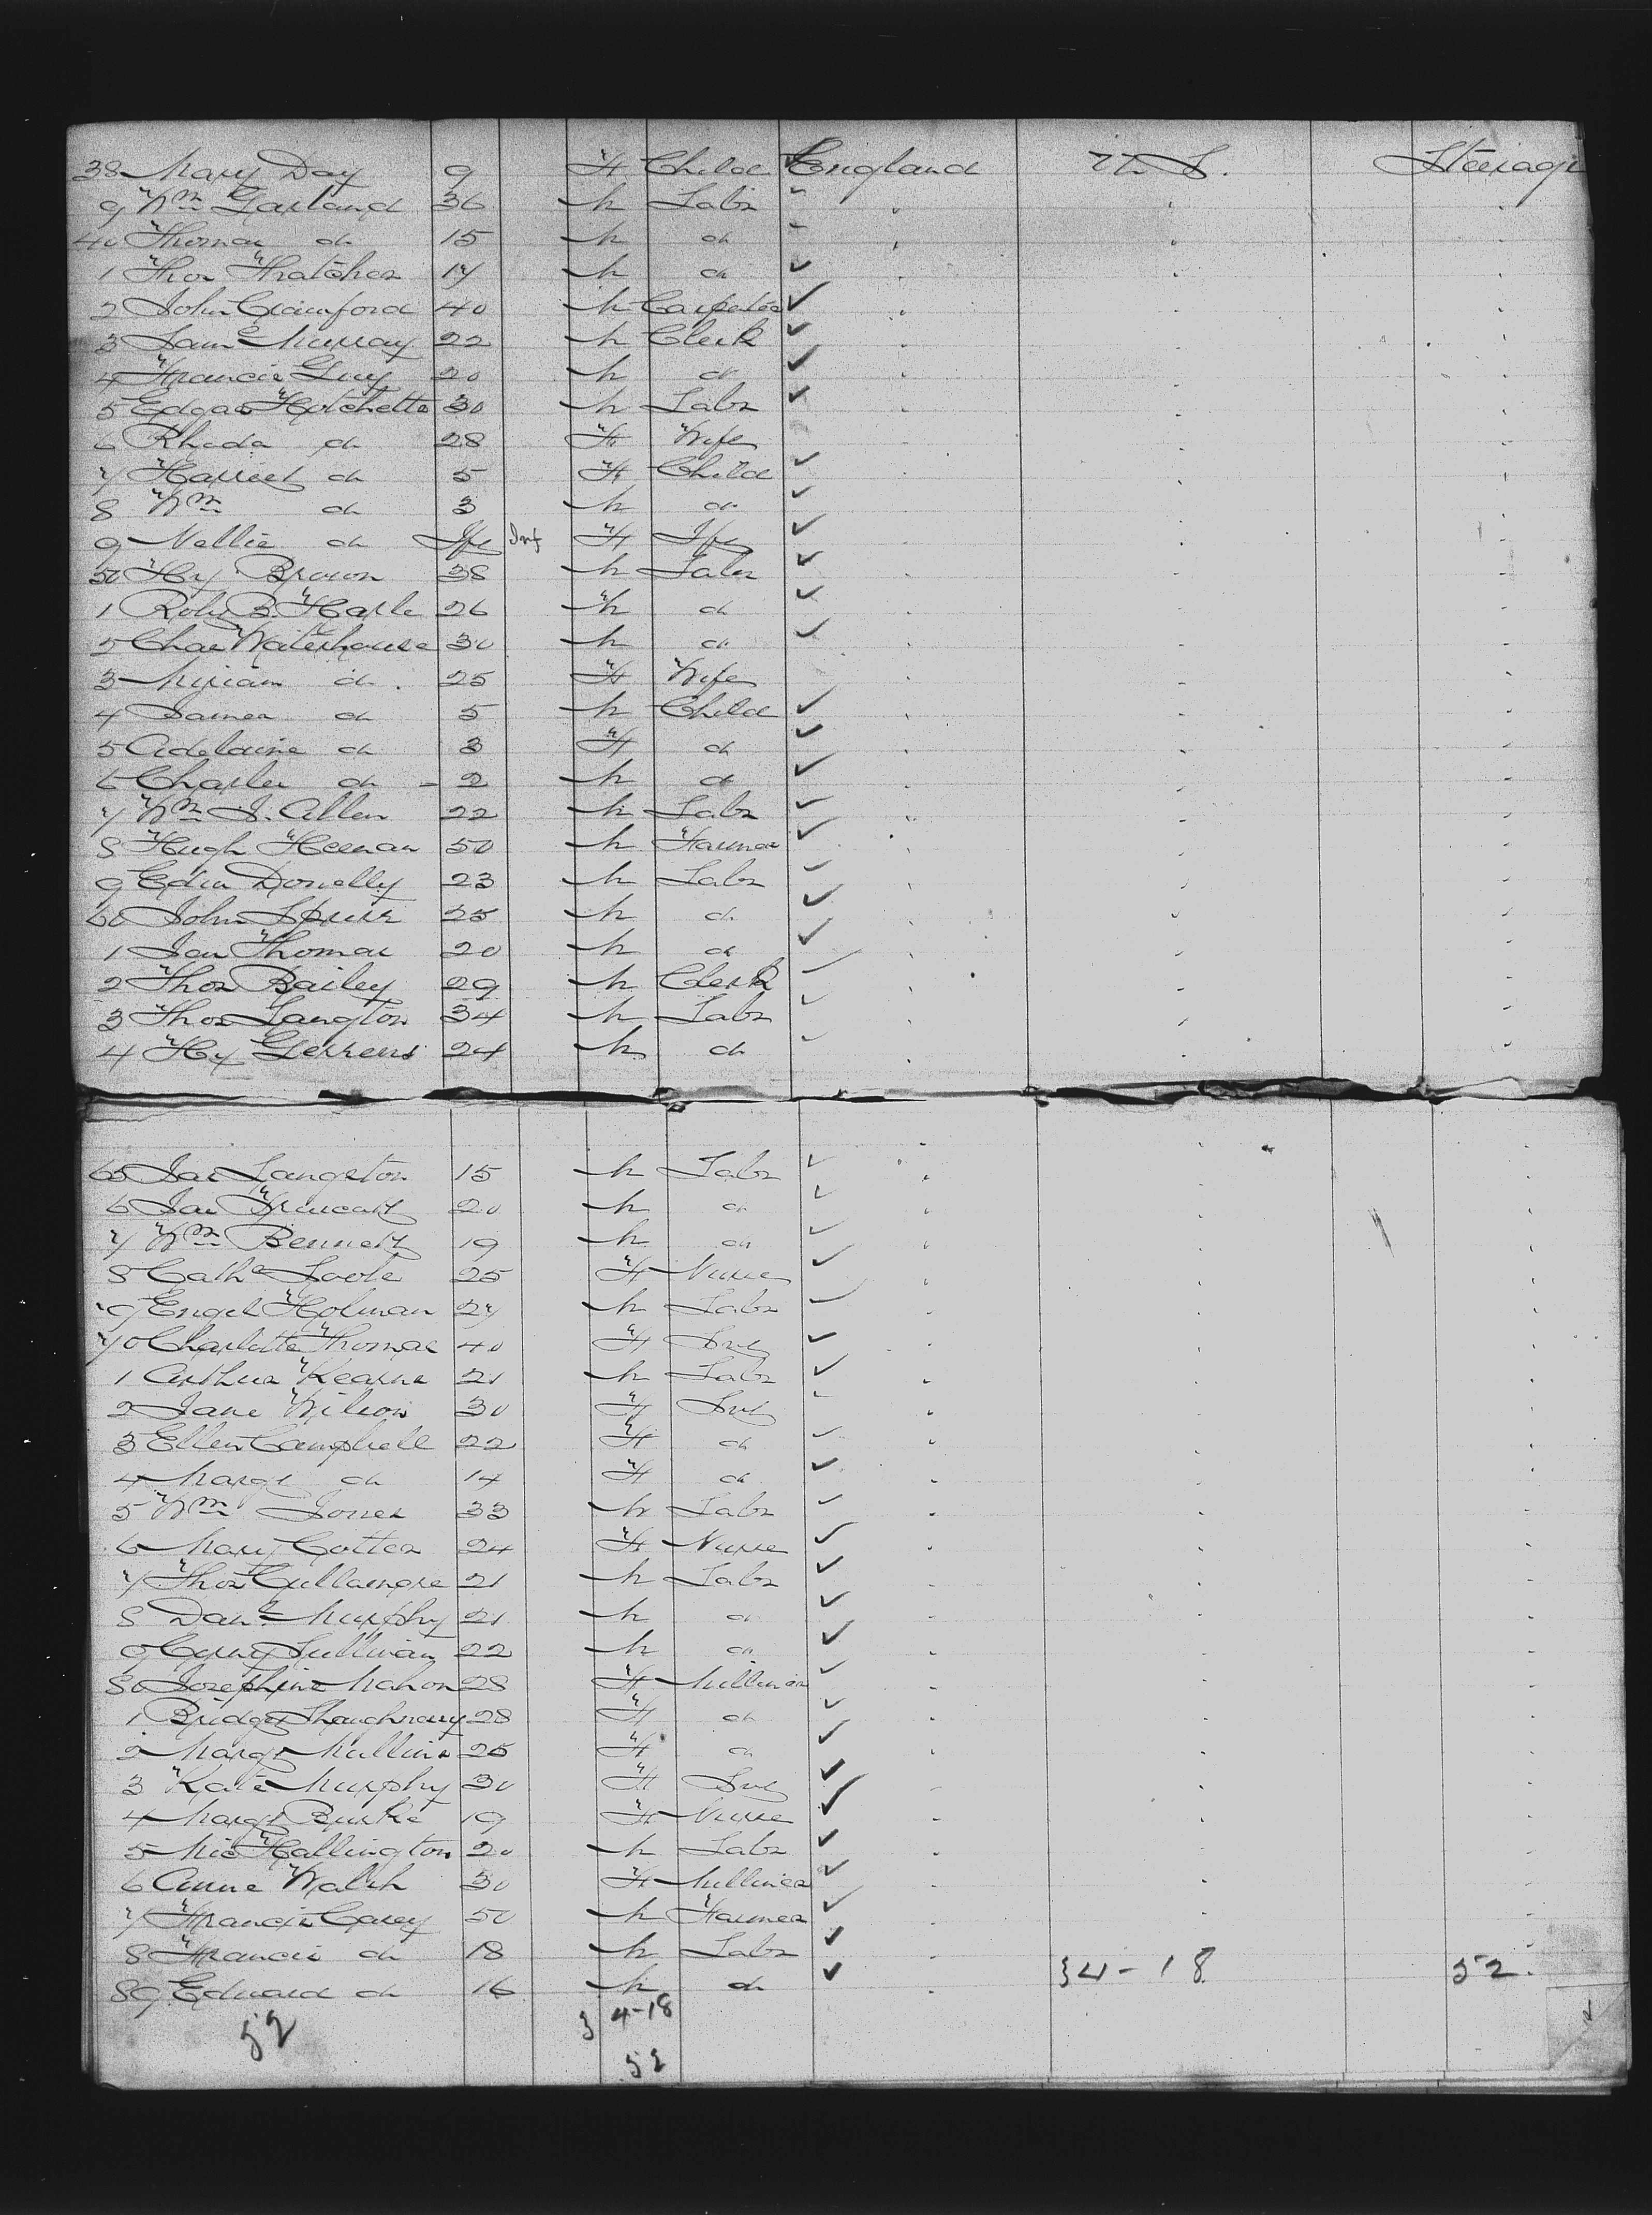 38 Mary Day 9 F Child England U.S. Steerage
9 Wm Garland 36 M Labr " " "
40 Thomas do 15 M do " " "
1 Thos Thatcher 17 M do " " "
2 John Crawford 40 M Carpenter " " "
3 Saml Murray 22 M Clerk " " "
4 Francis Guy 20 M do " " "
5 Edgar Hotchette 30 M Labr " " "
6 Rhoda do 28 F Wife " " "
7 Harriet do 5 F Child " " "
8 Wm do 3 M do " " "
9 Nellie do Inf Inf F Inf " " "
50 Hy Brown 38 M Labr " " "
1 Robt B. Harle 26 M do " " "
2 Chas Waterhouse 30 M do " " "
3 Miriam do 25 F Wife " " "
4 James do 5 M Child " " "
5 Adelaine do 3 F do " " "
6 Charles do 2 M do " " "
7 Wm J. Allen 22 M Labr " " "
8 Hugh Heenan 50 M Farmer " " "
9 Edw Donelly 23 M Labr " " "
60 John 25 M do " " "
1 Jas Thomas 20 M do " " "
2 Thos Bailey 29 M Clerk " " "
3 Thos Langton 34 M Labr " " "
4 Hy Gerrens 24 M do " " "
65 Jas Langston 15 M Labr " " "
6 Jas 20 M do " " "
7 Wm Bennett 19 M do " " "
8 Cathe 25 F Nurse " " "
9 Engel Holman 27 M Labr " " "
70 Charlotte Thomas 40 F Srvt " " "
1 Arthur Kearns 21 M Labr " " "
2 Jane Wilson 30 F Srvt " " "
3 Ellen Campbell 22 F do " " "
4 Margt do 14 F do " " "
5 Wm Jones 33 M Labr " " "
6 Mary Cotter 24 F Nurse " " "
7 Thos 21 M Labr " " "
8 Danl Murphy 21 M do " " "
9 Sullivan 22 M do " " "
80 Josephine Mahon 28 F Milliner " " "
1 Bridget Shaughnessy 28 F do " " "
2 Margt Mullins 25 F do " " "
3 Kate Murphy 30 F Srvt " " "
4 Margt Burke 19 F Nurse " " "
5 Mic Hallington 20 M Labr " " "
6 Anne Walsh 30 F Milliner " " "
7 Francis Carey 50 M Farmer " " "
8 Francis do 18 M Labr " " "
89 Edward do 16 M do " 34-18 52
52 34-18
52